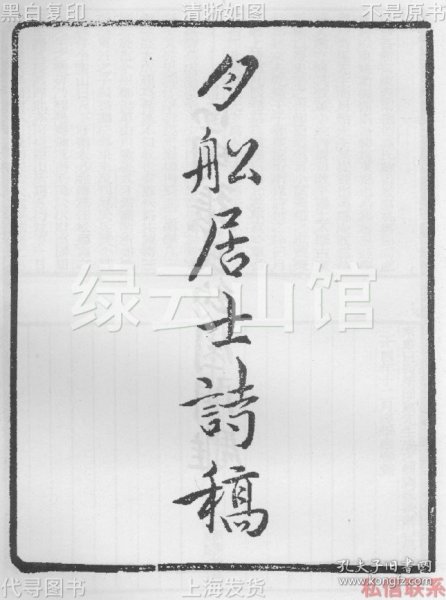 黑白复印 清晰如图 不是原书
月舩居士詩稿
绿云山馆
孔夫子旧书网
www.kongfz.com
代寻图书 上海发货 私信联系